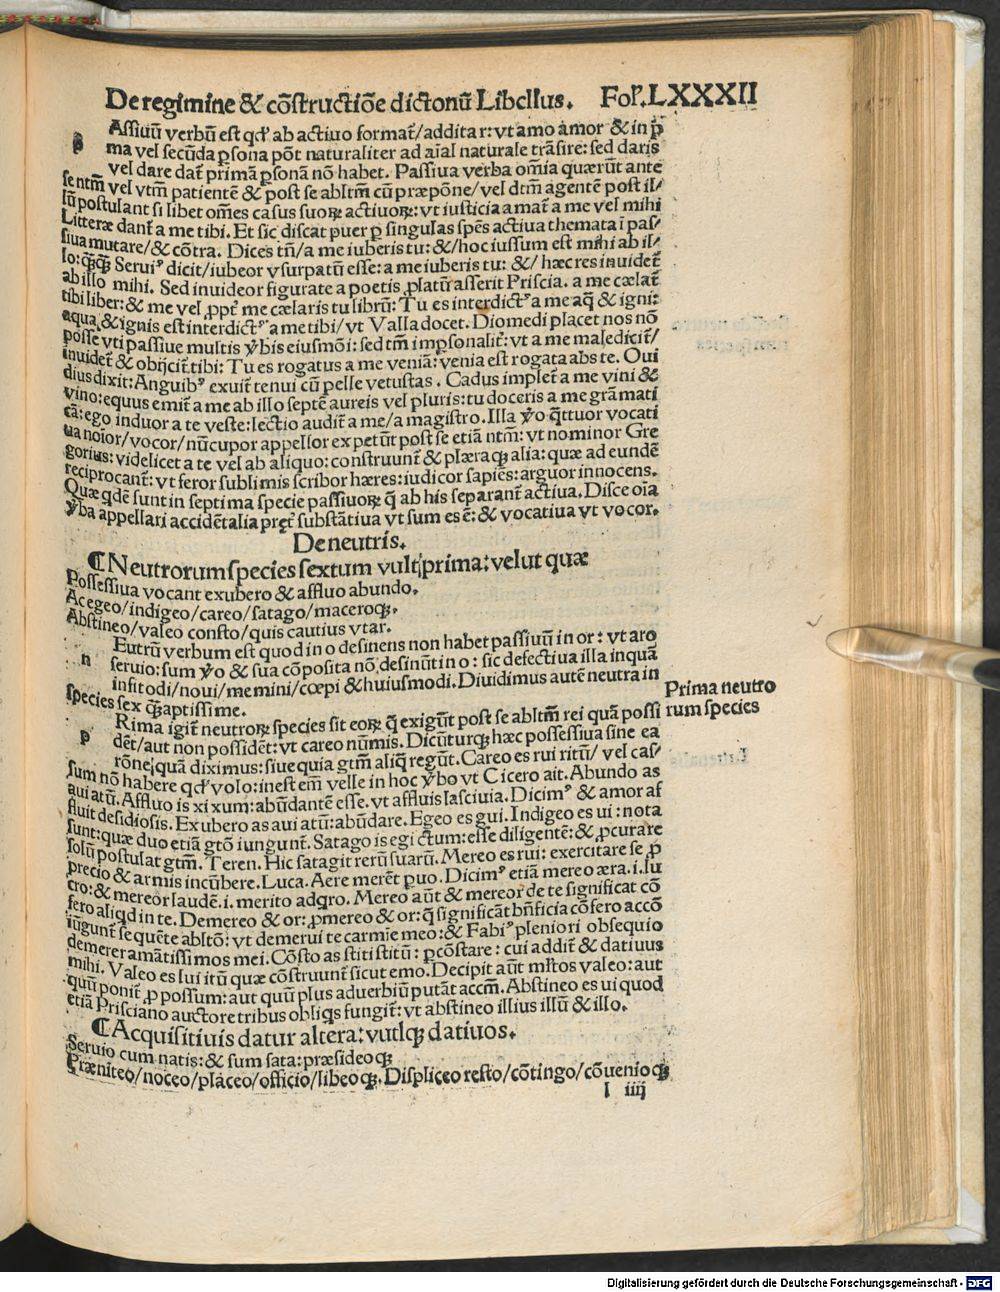 De regimine & cōstructiōe dictonū Libellus. Fol'.LXXXII
p Assiuū verbū est qd' ab actiuo format̄/addita r: vt amo amor & in p̄
ma vel secūda ꝑsona pōt naturaliter ad aīal naturale trāsire: sed daris
vel dare dat̄ primā ꝑsonā nō habet. Passiua verba om̄ia quærūt ante
se ntm̄ vel vtm̄ patientē & post se abltm̄ cū præpōne/vel dtm̄ agentē post il/
lū postulant si libet om̄es casus suoꝝ actiuoꝝ: vt iusticia amat̄ a me vel mihi
Litteræ dant̄ a me tibi. Et sic discat puer ꝑ singulas spēs actiua themata ī pas/
siua mutare/& cōtra. Dices tn̄/a me iuberis tu: &/hoc iussum est mihi ab il/
lo: q̄q̄ Serui⁹ dicit/iubeor vsurpatū esse: a me iuberis tu: &/ hæc res inuidet̄
ab illo mihi. Sed inuideor figurate a poetis ꝓlatū asserit Priscia. a me cælat̄
tibi liber: & me vel ꝓpt̄ me cælaris tu librū: Tu es interdict⁹ a me aq̄ & igni:
aqua & ignis est interdict⁹ a me tibi/vt Valla docet. Diomedi placet nos nō
posse vti passiue multis v̄bis eiusmōi: sed tm̄ imꝑsonalit̄: vt a me maledicit̄/
inuidet̄ & obijcit̄ tibi: Tu es rogatus a me veniā: venia est rogata abs te. Oui
dius dixit: Anguib⁹ exuit̄ tenui cū pelle vetustas. Cadus implet̄ a me vini &
vino: equus emit̄ a me ab illo septē aureis vel pluris: tu doceris a me grāmati
cā: ego induor a te veste: lectio audit̄ a me/a magistro. Illa v̄o q̄ttuor vocati
ua noior/vocor/nūcupor appellor expetūt post se etiā ntm̄: vt nominor Gre
gorius: videlicet a te vel ab aliquo: construunt̄ & plæraqꝫ alia: quæ ad eundē
reciprocant̄: vt feror sublimis scribor hæres: iudicor sapiēs: arguor innocens.
Quæ qdē sunt in septima specie passiuoꝝ q̄ ab his separant̄ actiua. Disce oīa
v̄ba appellari accidētalia pręt̄ substātiua vt sum es ē: & vocatiua vt vocor.
De neutris.
¶ Neutrorum species sextum vult prima: velut quæ
Possessiua vocant exubero & affluo abundo.
Ac egeo/indigeo/careo/satago/maceroqꝫ.
Abstineo/valeo consto/quis cautius vtar.
n Eutrū verbum est quod in o desinens non habet passiuū in or: vt aro
seruio: sum v̄o & sua cōposita nō desinūt in o: sic defectiua illa inquā
infit odi/noui/memini/cœpi & huiusmodi. Diuidimus autē neutra in
species sex q̄ aptissime.
Prima neutro
rum species
p Rima igit̄ neutroꝝ species sit eoꝝ q̄ exigūt post se abltm̄ rei quā possi
dēt/aut non possidēt: vt careo nūmis. Dicūturqꝫ hæc possessiua sine ea
rōne quā diximus: siue quia gtm̄ aliq̄ regūt. Careo es rui ritū/ vel cas/
sum nō habere qd' volo: inest em̄ velle in hoc v̄bo vt Cicero ait. Abundo as
aui atū. Affluo is xi xum: abūdantē esse. vt affluis lasciuia. Dicim⁹ & amor af
fluit desidiosis. Exubero as aui atū: abūdare. Egeo es gui. Indigeo es ui: nota
sunt: quæ duo etiā gtō iungunt̄. Satago is egi ctum: esse diligentē: & ꝓcurare
solū postulat gtm̄. Teren. Hic satagit rerū suarū. Mereo es rui: exercitare se ꝓ
precio & armis incūbere. Luca. Aere meret̄ ꝑuo. Dicim⁹ etiā mereo æra. i. lu
cro: & mereor laudē. i. merito adqro. Mereo aūt & mereor de te significat cō
fero aliqd in te. Demereo & or: ꝓmereo & or: q̄ significāt bn̄ficia cōfero accō
iūgunt̄ sequēte abltō: vt demerui te carmīe meo: & Fabi⁹ pleniori obsequio
demerer amātissimos mei. Cōsto as stiti stitū: ꝑ cōstare: cui addit̄ & datiuus
mihi. Valeo es lui itū quæ cōstruunt̄ sicut emo. Decipit aūt mltos valeo: aut
quū ponit̄ ꝓ possum: aut quū plus aduerbiū putāt accm̄. Abstineo es ui quod
etiā Prisciano auctore tribus obliqs fungit̄: vt abstineo illius illū & illo.
¶ Acquisitiuis datur altera: vultqꝫ datiuos.
Seruio cum natis: & sum sata: præsideoqꝫ
Præniteo/noceo/placeo/officio/libeoqꝫ. Displiceo resto/cōtingo/cōuenioqꝫ
l iiij
Digitalisierung gefördert durch die Deutsche Forschungsgemeinschaft - DFG